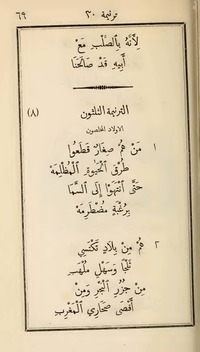 ٦٩ ترنيمة ٣٠
لِأَنَّهُ بِٱلصَّلْبِ مَعْ
أَبِيهِ قَدْ صَالَحَنَا
الترنيمة الثلثون (٨)
الاولاد المخلصون
١ مَنْ هُمْ صِغَارٌ قَطَعُوا
طُرْقَ ٱلْحَيٰوةِ ٱلْمُظْلِمَهْ
حَتَّى ٱنْتَهَوْا إِلَى ٱلسَّمَا
بِرُغْبَةٍ مُضْطَرِمَهْ
٢ هُمْ مِنْ بِلَادٍ تَكْتَسِي
ثَلْجًا وَسَهْلٍ مُلْهَبِ
مِنْ جُزُرِ ٱلْبَحْرِ وَمِنْ
أَقْصَى صَحَارِي ٱلْمَغْرِبِ